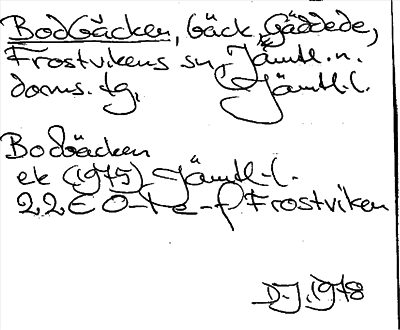 Bodbäcken, bäck, Gäddede,
Frostvikens sn, Jämtl. n.
doms. tg, Jämtl. l.
Bodbäcken
ek (1975) Jämtl-l.
22E 0-1 e-f Frostviken
D-J. 1978